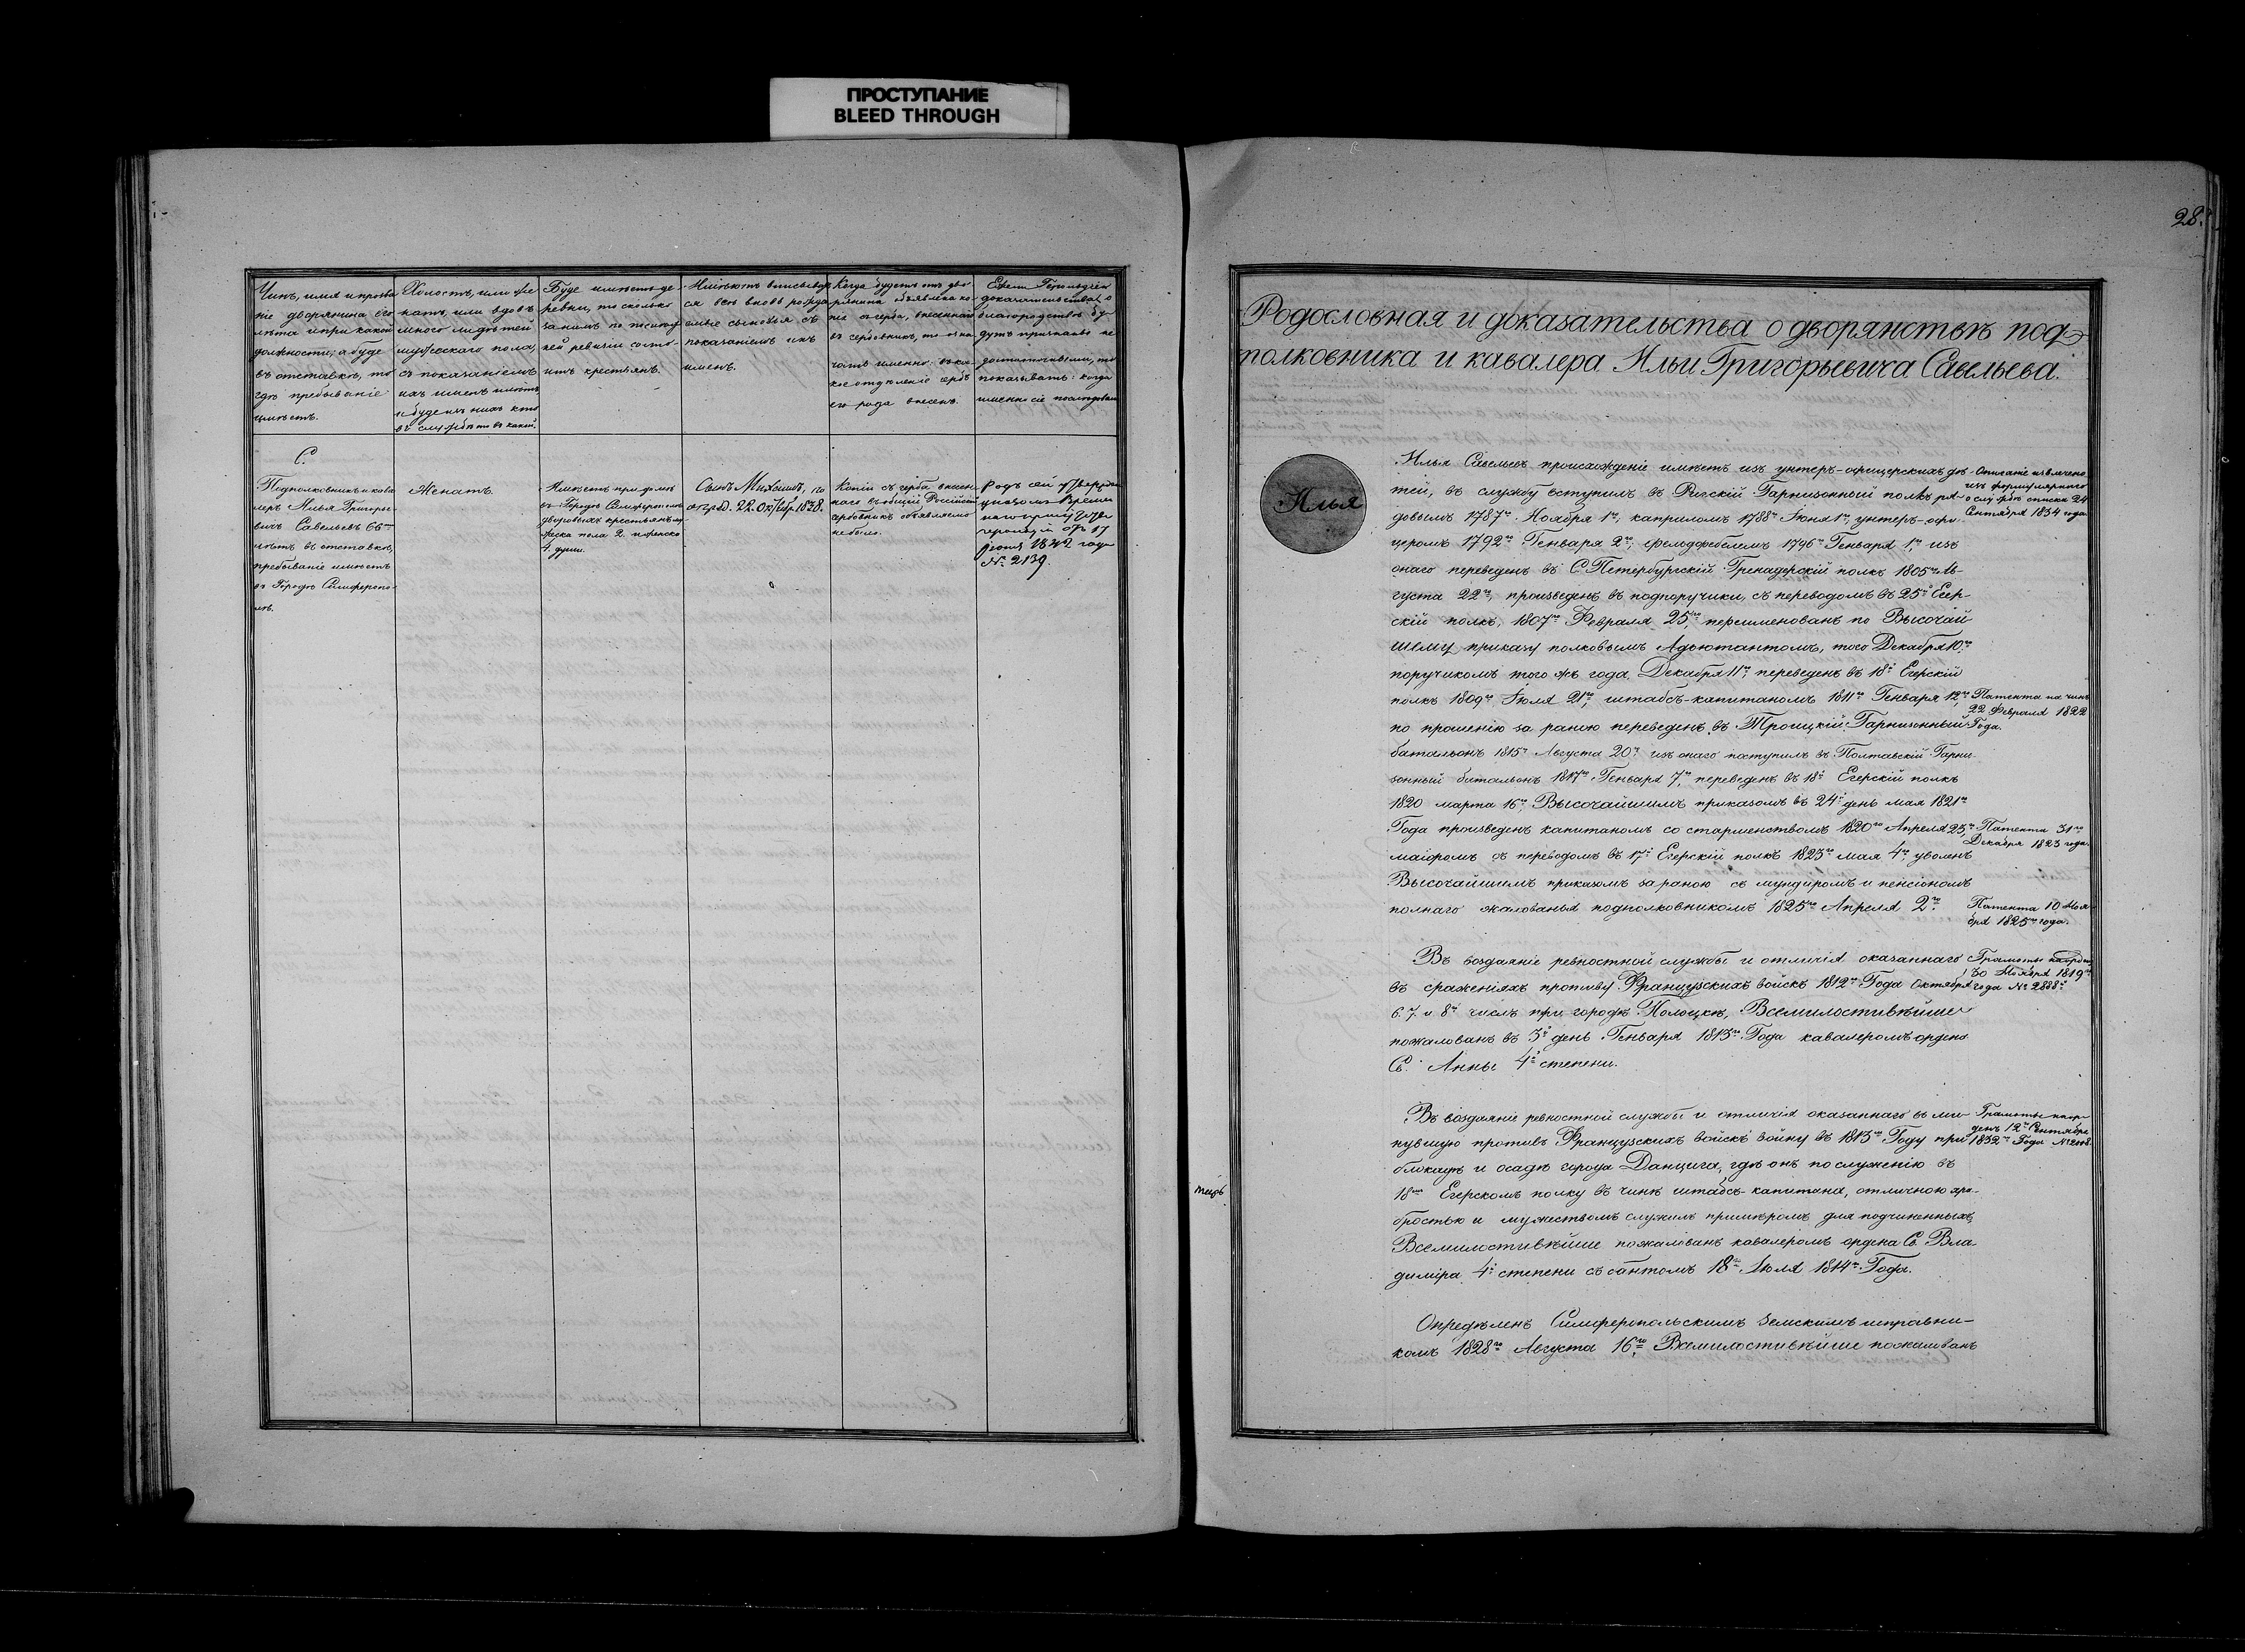 ПРОСТУПАНИЕ
BLEED THROUGH
28.
Чинъ, имя и прозва
ніе дворянина его
лѣта и при какой
должности; а буде
въ отставкѣ, то
гдѣ пребываніе
имѣетъ.
Холостъ, или же
натъ, или вдовъ
много ли дѣтей
мужескаго пола,
съ показаніемъ
ихъ именъ имѣетъ,
и буде изъ нихъ кто
въ службѣ то въ какой.
Буде имѣетъ де
ревни, то сколько
за нимъ по
ней ревизіи состо-
итъ крестьянъ.
Имѣютъ вписыват
ся всѣ вновь рожда
емые сыновья съ
показаніемъ ихъ
именъ.
Когда будетъ отъ дво
рянина объявлена ко-
пія съ герба, внесеннаго
въ гербовникъ, то озна
чать именно: въ ка-
кое отдѣленіе гербъ
его рода внесенъ.
Если Герольдіею
доказательства о
благородствѣ бу-
дутъ признаны не
достаточными, то
показывать: когда
именно сіе послѣдовало
С.
Подполковникъ и кава
леръ Илья Григорье
вичъ Савельевъ 66
лѣтъ въ отставкѣ,
пребываніе имѣетъ
въ Городѣ Симферопо-
лѣ.
Женатъ.
Имѣетъ при домѣ
въ Городѣ Симферополѣ
дворовыхъ крестьянъ му-
жеска пола 2. и женска
4. души.
Сынъ Михаилъ, его
22. Октября 1828.
Копіи съ герба внесен
наго въ общій Россійскій
гербовникъ объявляемо
небыло.
Родъ сей утвержденъ
указомъ Времен
наго присутствія
герольдіи отъ 17
Іюня 1842 года
№ 2139.
Родословная и доказательства о дворянствѣ под-
полковника и кавалера Ильи Григорьевича Савельева.
Илья
Илья Савельевъ происхожденіе имѣетъ изъ унтеръ-офицерскихъ дѣ-
тей, въ службу вступилъ въ Рижскій Гарнизонный полкъ ря-
довымъ 1787го Ноября 1го, капраломъ 1788го Іюня 1го, унтеръ-офи-
церомъ 1792го Генваря 2го, фельдфебелемъ 1796го Генваря 1го, изъ
онаго переведенъ въ С. Петербургскій Гренадерскій полкъ 1805го Ав-
густа 22го, произведенъ въ подпоручики, съ переводомъ въ 25й Егер-
скій полкъ, 1807го Февраля 25го, переименованъ по Высочай
шему приказу полковымъ Адьютантомъ, того Декабря 10го
поручикомъ того жъ года Декабря 11го, переведенъ въ 18й Егерскій
полкъ 1809го Іюля 21го, штабсъ-капитаномъ 1811го Генваря 12го,
по прошенію за раною переведенъ въ Троицкій Гарнизонный
батальонъ 1815го Августа 20го изъ онаго поступилъ въ Полтавскій Гарни-
зонный батальонъ 1817го Генваря 7го, переведенъ въ 18й Егерскій полкъ
1820 марта 16го Высочайшимъ приказомъ въ 24й день мая 1821го
Года произведенъ капитаномъ со старшенствомъ 1820го Апреля 23го,
маіоромъ съ переводомъ въ 17й Егерскій полкъ 1823го мая 4го, уволенъ
Высочайшимъ приказомъ за раною съ мундиромъ и пенсіономъ
полнаго жалованья подполковникомъ 1825го Апреля 2го.
Описаніе извлечено
изъ формулярнаго
о службѣ списка 24
Сентября 1834 года
Патента на чинъ
22 Февраля 1822
Года.
Патента 31го
Декабря 1823 года.
Патента 10 Ноя
бря 1825го года.
Въ воздаяніе ревностной службы и отличія оказаннаго
въ сраженіяхъ противу Французскихъ войскъ 1812го Года Октября
6. 7. и 8го числъ при городѣ Полоцкѣ, Всемилостивѣйше
пожалованъ въ 3й день Генваря 1813го Года кавалеромъ ордена
Св. Анны 4й степени.
Грамоты
30 Ноября 1819го
года № 2888й
Въ воздаяніе ревностной службы и отличія оказаннаго въ ми-
нувшую противъ Французскихъ войскъ войну въ 1813мъ Году при
блокадѣ и осадѣ города Данцига, гдѣ онъ по служенію въ
18мъ Егерскомъ полку въ чинѣ штабсъ-капитана, отличною хра-
бростью и мужествомъ служилъ примѣромъ для подчиненныхъ,
Всемилостивѣйше пожалованъ кавалеромъ ордена Св. Вла-
димира 4й степени съ бантомъ 18го Іюля 1814го Года.
Грамоты на ор-
денъ 12го Сентября
1832го Года
Опредѣленъ Симферопольскимъ земскимъ исправни-
комъ 1828го Августа 16го Всемилостивѣйше пожалованъ